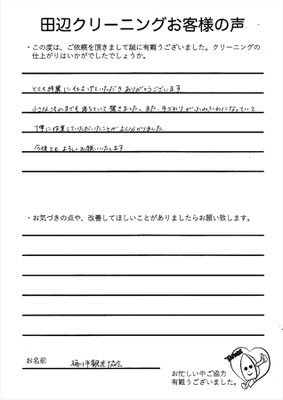 田辺クリーニングお客様の声
・この度は、ご依頼を頂きまして誠に有難うございました。クリーニングの
仕上がりはいかがでしたでしょうか。
とても綺麗に仕上げていただきありがとうございます
小さな汚れまでも落ちていて驚きました。また、手ざわりがふわふわになっていて
丁寧に作業していただいたことがよく分かりました
今後ともよろしくお願いいたします
・お気づきの点や、改善してほしいことがありましたらお願い致します。
お名前
桶川市観光協会
お忙しい中ご協力
有難うございました。